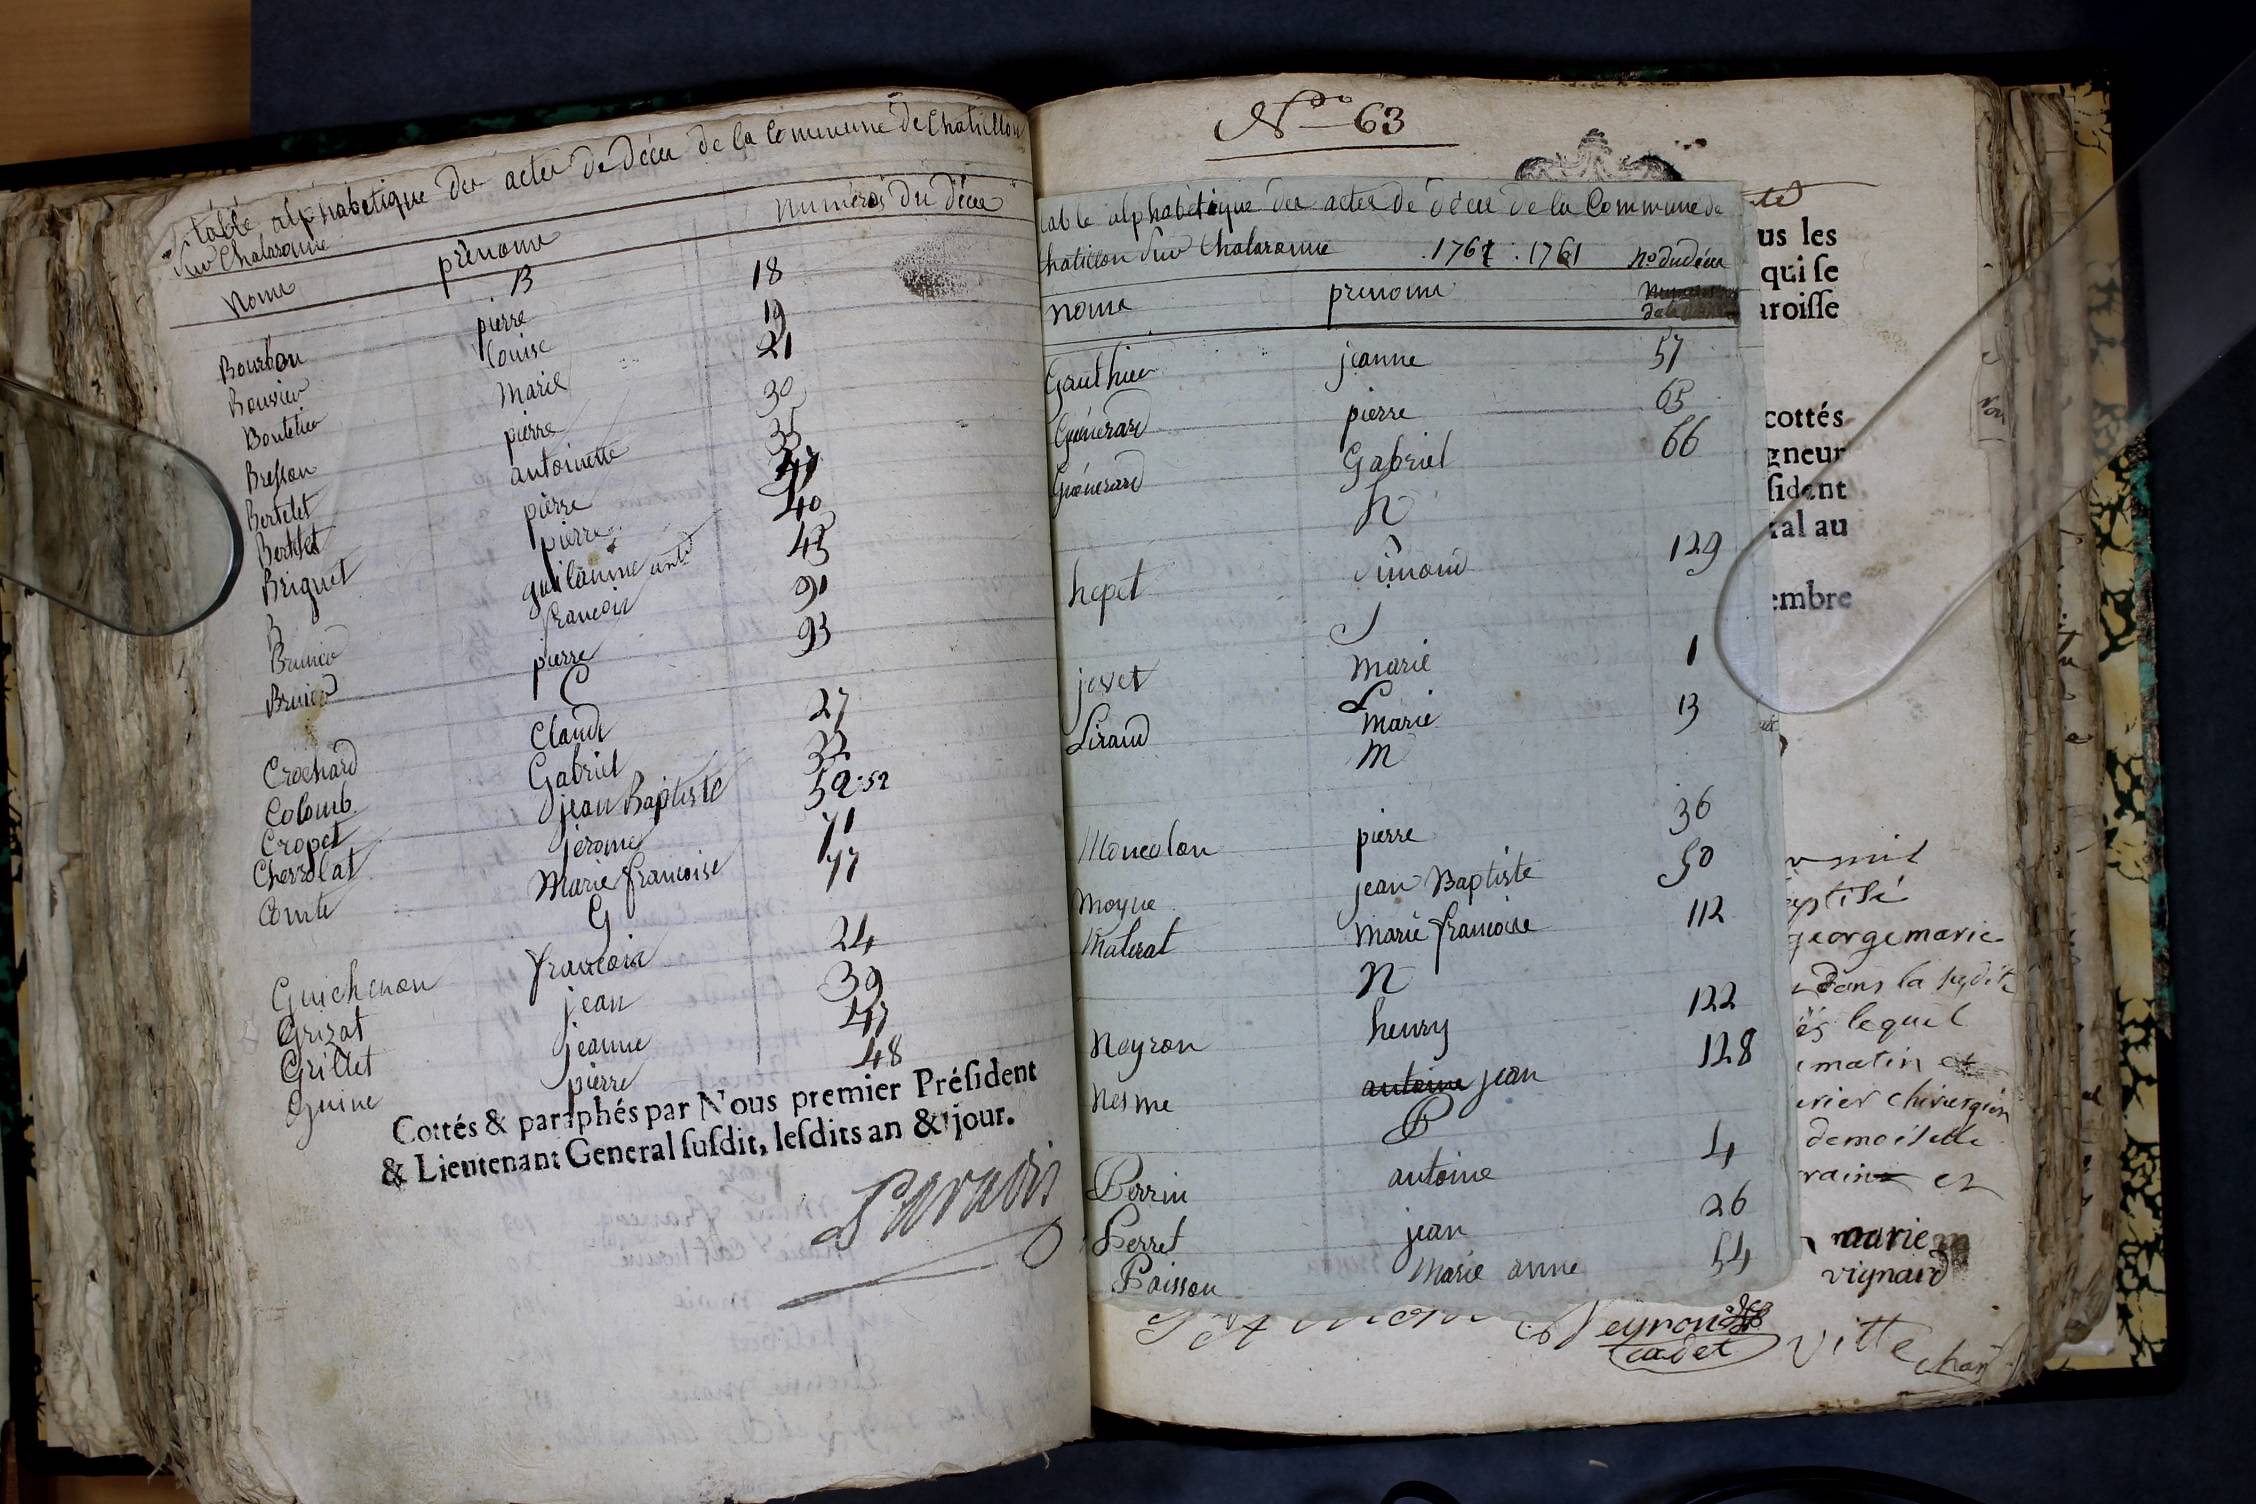 table alphabetique des actes de Décès de la Commune de Chatillon
Sur Chalaronne
noms prénoms numéros du décès
B
Bourbon pierre 18
Bouvier Louise 19
Boutelier Marie 21
Bresson pierre 30
Bertelet antoinette 35
Bertelet pierre 37
Briguet pierre 40
B guilaume ant 43
Brunier francois 91
Brunier pierre 93
C
Crochard Claude 27
Colomb Gabriel 32
Cropet jean Baptiste 52·52
Cherrolat jerome 71
Comte Marie francoise 77
G
Guichenon francois 24
Grizat jean 39
Grillet jeanne 47
Guine pierre 48
Cottés & paraphés par Nous premier Préſident
& Lieutenant General ſuſdit, leſdits an & jour.
No 63
table alphabétique des actes de décès de la Commune de
chatillon Sur Chalaronne 1761 : 1761 no du décès
noms prenoms
Gauthier jeanne 57
Guénerard pierre 65
Guénerard Gabriel 66
h
hopet Simond 129
J
jovet Marie 1
L
Liraud Marie 13
M
Moncolon pierre 36
Moyne jean Baptiste 50
Materat Marie francoise 112
N
Neyron henry 122
Nesme antoine jean 128
P
Perrin antoine 4
Perret jean 26
Poisson Marie anne 54
us les
qui ſe
aroiſſe
cottés
gneur
ſident
ral au
embre
mil
george marie
dans la
lequel
matin et
chirurgien
demoiselle
et
marie
vignard
Neyron
cadet
Vitte